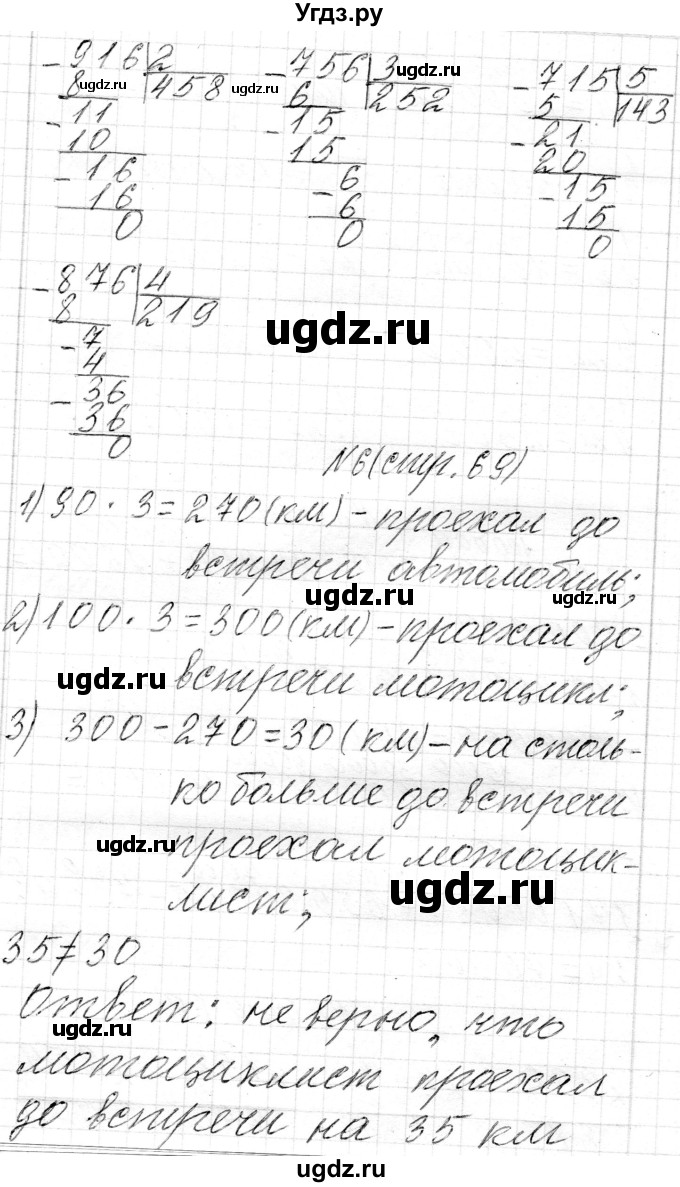 Угдз.ру
916 | 2
8 | 458
11
10
16
16
0
756 | 3
6 | 252
15
15
6
6
0
715 | 5
5 | 143
21
20
15
15
0
876 | 4
8 | 219
7
4
36
36
0
ugdz.ru
ugdz.ru
ugdz.ru
ugdz.ru
N6(стр.69)
1) 90 · 3 = 270 (км) - проехал до
встречи автомобиль;
ugdz.ru
ugdz.ru
2) 100 · 3 = 300 (км) - проехал до
встречи мотоцикл;
ugdz.ru
3) 300 - 270 = 30 (км) - на столь-
ко больше до встречи
проехал мотоцик-
ugdz.ru
лист;
ugdz.ru
35 ≠ 30
Ответ: не верно, что
ugdz.ru
мотоциклист проехал
до встречи на 35 км
ugdz.ru